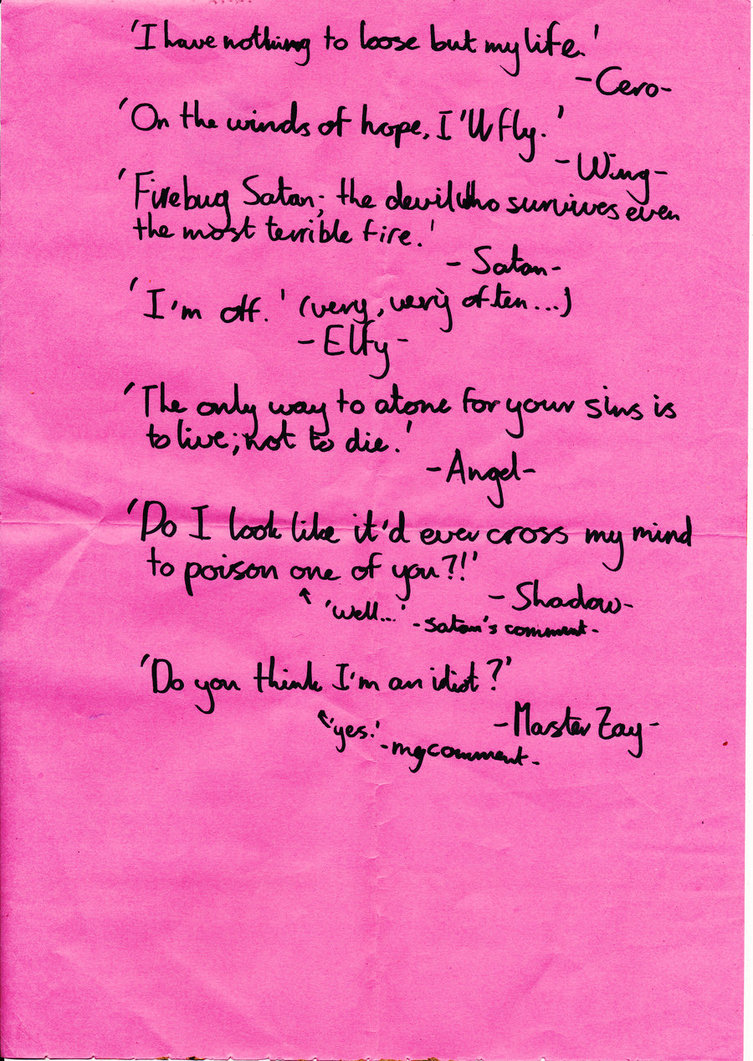 'I have nothing to loose but my life.'
-Cero-
'On the winds of hope, I'll fly.'
-Wing-
'Firebug Satan; the devil who survives even
the most terrible fire.'
-Satan-
'I'm off.' (very, very often...)
-Elfy-
'The only way to atone for your sins is
to live; not to die.'
-Angel-
'Do I look like it'd ever cross my mind
to poison one of you?!'
-Shadow-
'well...' -Satan's comment-
'Do you think I'm an idiot?'
-Master Zay-
'yes.' -my comment-